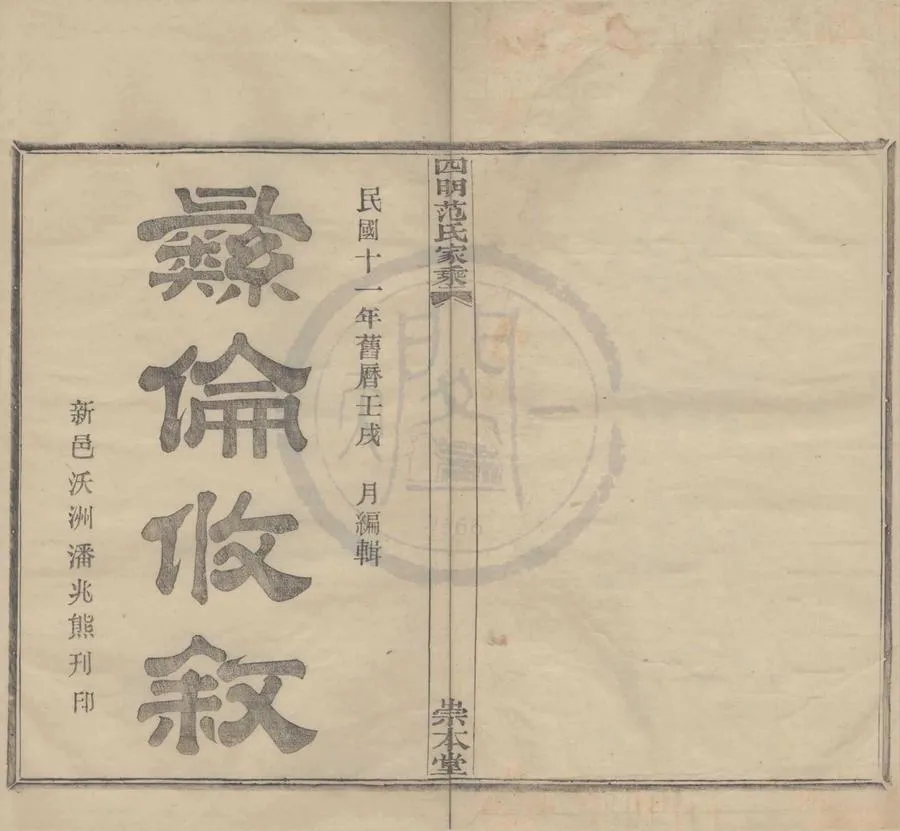 四明范氏家乘
崇本堂
民國十一年舊曆壬戌 月編輯
彝倫攸敘
新邑沃洲潘兆熊刊印